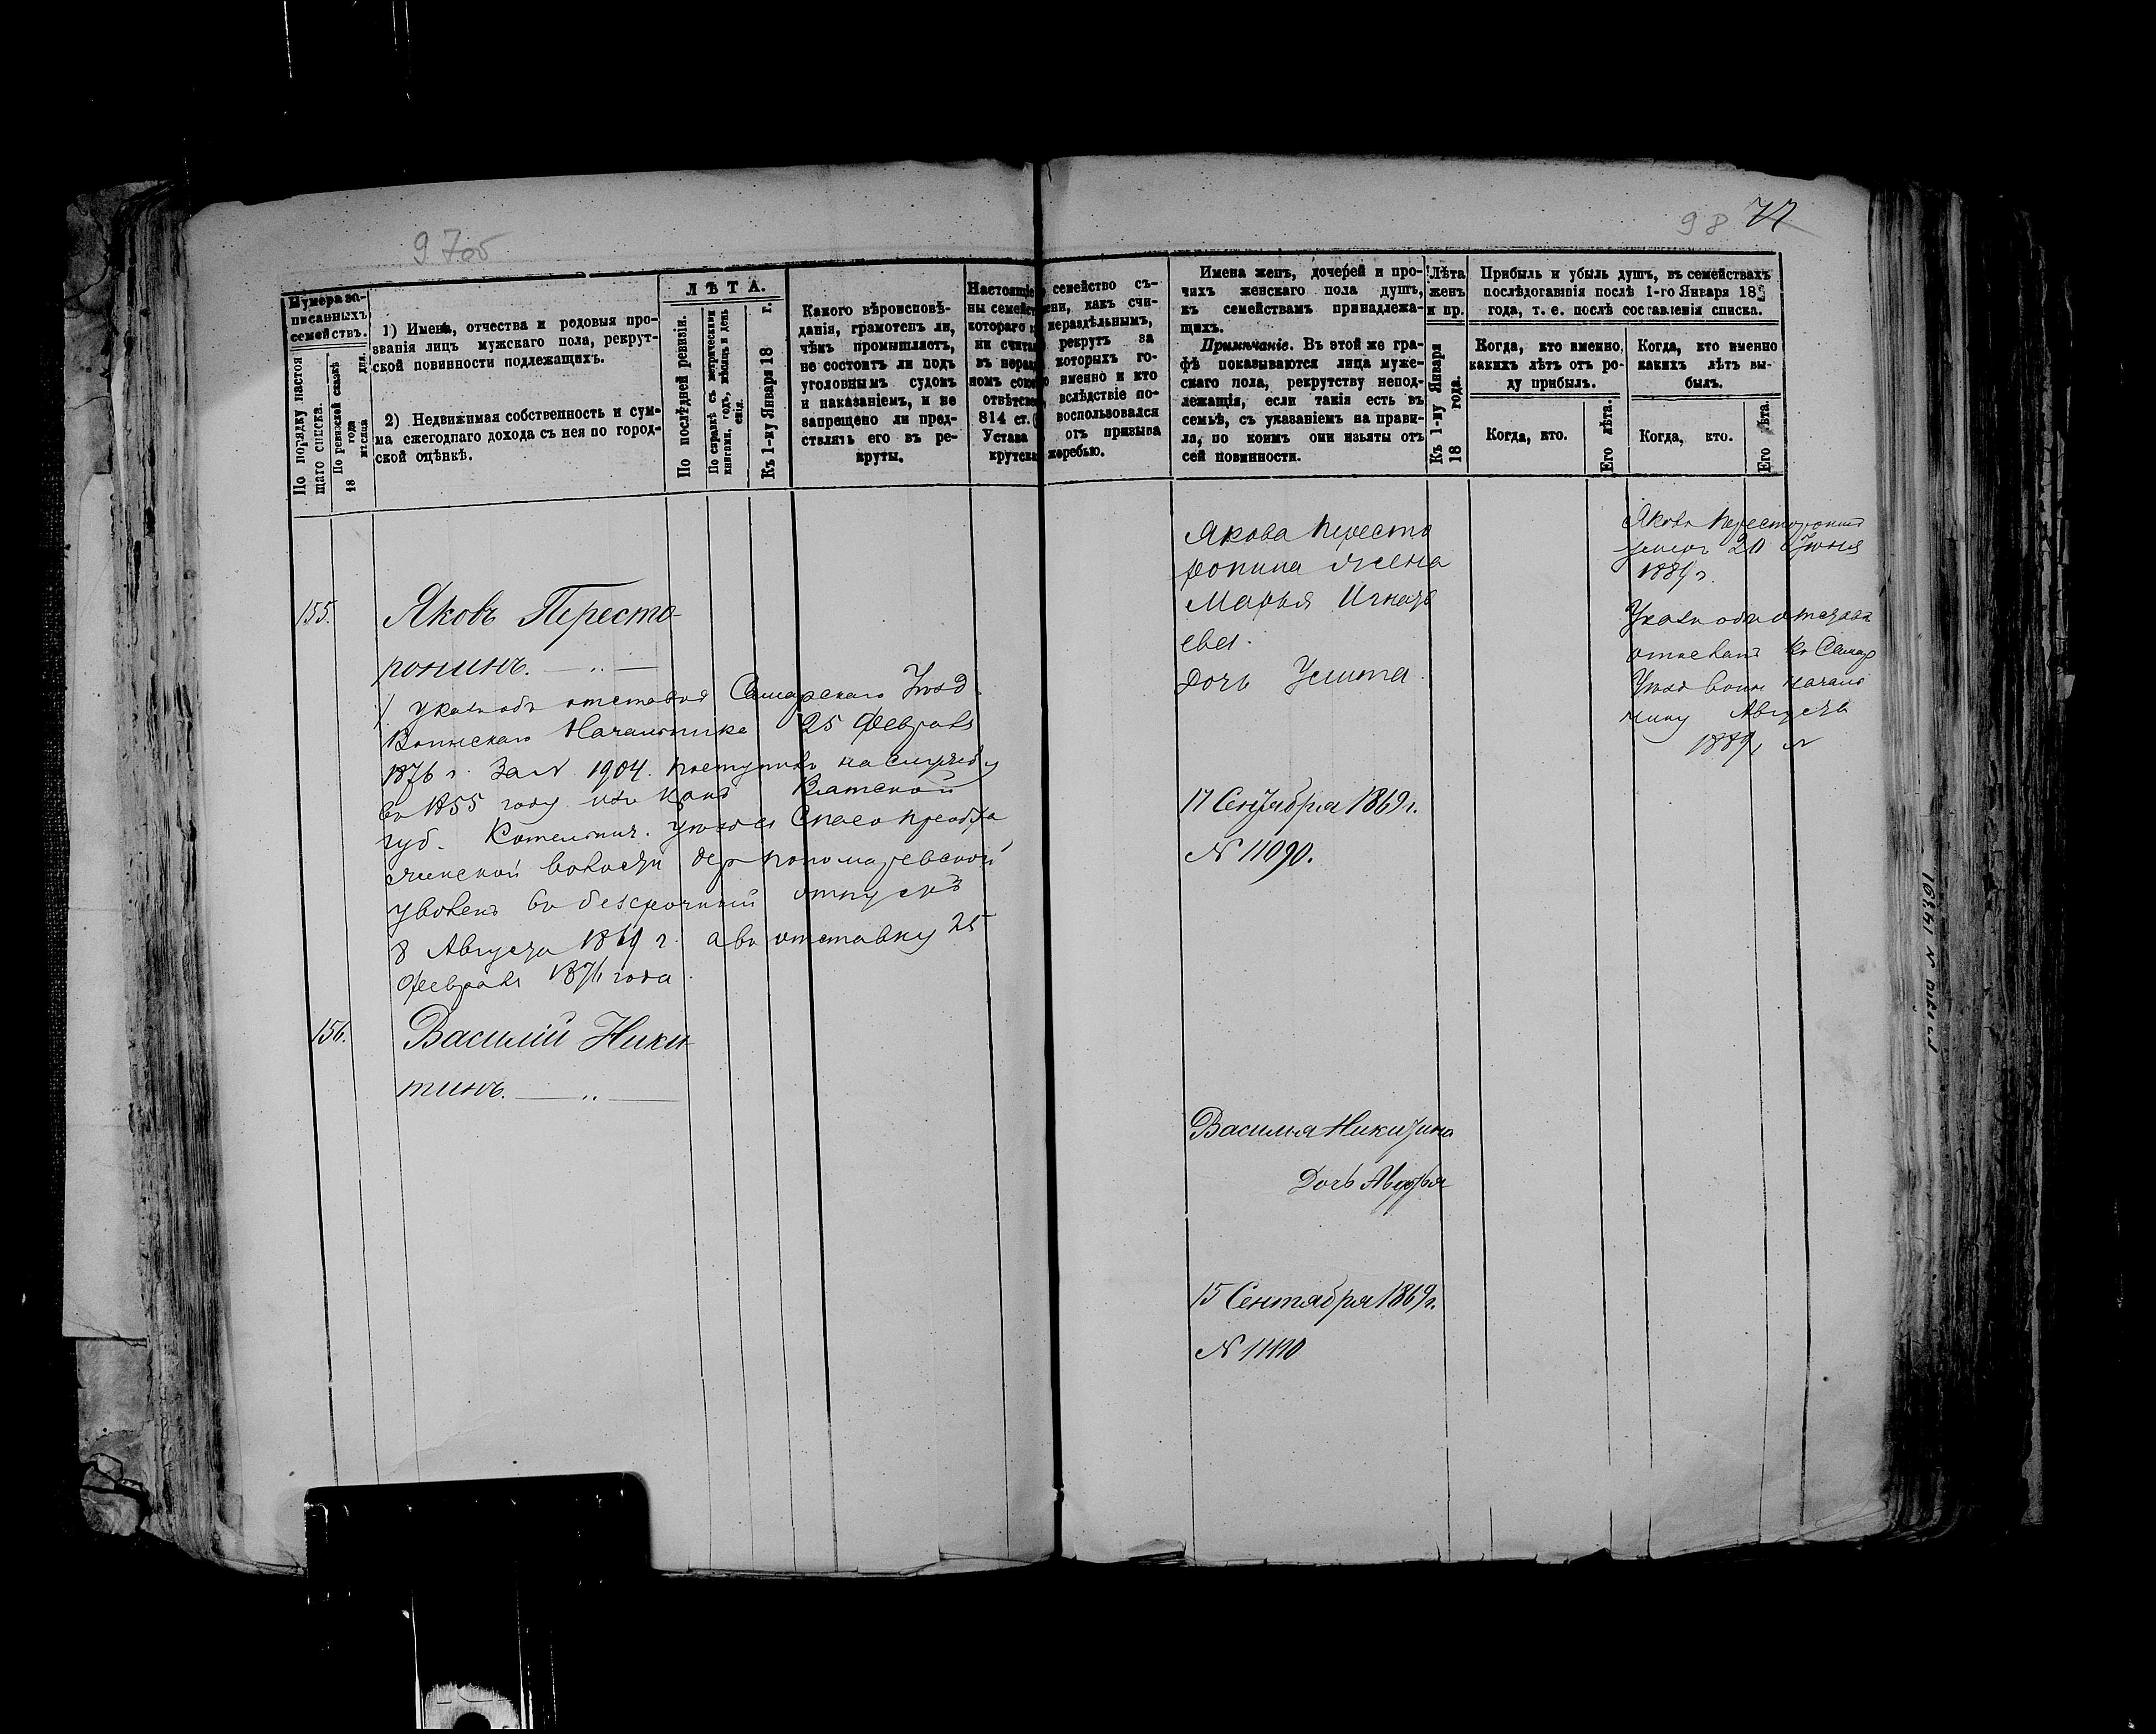 97об
98 77
Нумера за-
писанныхъ
семействъ.
По порядку настоя
щаго списка.
По ревизской сказкѣ
18 года
мѣсяца дня.
1) Имена, отчества и родовыя про-
званія лицъ мужскаго пола, рекрут-
ской повинности подлежащихъ.
2) Недвижимая собственность и сум-
ма ежегоднаго дохода съ нея по город-
ской оцѣнкѣ.
ЛѢТА.
По послѣдней ревизіи.
По справкѣ съ метрическими
книгами, годъ, мѣсяцъ и день
Къ 1-му Января 18 г.
Какого вѣроисповѣ-
данія, грамотенъ ли,
чѣмъ промышляетъ,
не состоитъ ли подъ
уголовнымъ судомъ
и наказаніемъ, и не
запрещено ли пред-
ставлять его въ ре-
круты.
Настоящіе
ны семейст
котораго
ни счита
въ нераз
номъ
отвѣтств
814 ст.
Устава
крутска
семейство съ-
ени, какъ счи-
нераздѣльнымъ,
рекрутъ за
которыхъ го-
именно и кто
вслѣдствіе по-
воспользовался
отъ призыва
жеребью.
Имена женъ, дочерей и про-
чихъ женскаго пола душъ,
къ семействамъ принадлежа-
щихъ.
Примѣчаніе. Въ этой же гра-
фѣ показываются лица муже-
скаго пола, рекрутству непод-
лежащія, если такія есть въ
семьѣ, съ указаніемъ на прави-
ла, по коимъ они изъяты отъ
сей повинности.
Лѣта
женъ
и пр.
Къ 1-му Января
18 года.
Прибыль и убыль душъ, въ семействахъ
послѣдовавшія послѣ 1-го Января 18
года, т. е. послѣ составленія списка.
Когда, кто именно,
какихъ лѣтъ отъ ро-
ду прибылъ.
Когда, кто именно
какихъ лѣтъ вы-
былъ.
Когда, кто.
Его лѣта.
Когда, кто.
Его лѣта.
155.
Яковъ Пересто-
ронинъ.
Указъ объ отставкѣ Самарскаго Уѣзд
Воинскаго Начальника 25 Февраля
1876 г. за № 1904. поступилъ на службу
въ 1855 году изъ Вятской
губ. Котельнич. уѣзда Спасо Преобра
женской волости дер Пономаревской
уволенъ въ безсрочный отпускъ
8 Августа 1869 г. а въ отставку 25
Февраля 1876 года.
156.
Василій Ники-
тинъ.
Якова Пересто
ронина жена
Марья Игнать
ева.
Дочь Улита.
17 Сентября 1869 г.
№ 11090.
Василья Никитина
Дочь Авдотья
15 Сентября 1869 г.
№ 11410
Яковъ Пересторонинъ
умеръ 20 Іюня
1889 г.
Указъ объ отставкѣ
отосланъ въ Самар
Уѣзд Воин Началь
нику Августа
1889 г. №